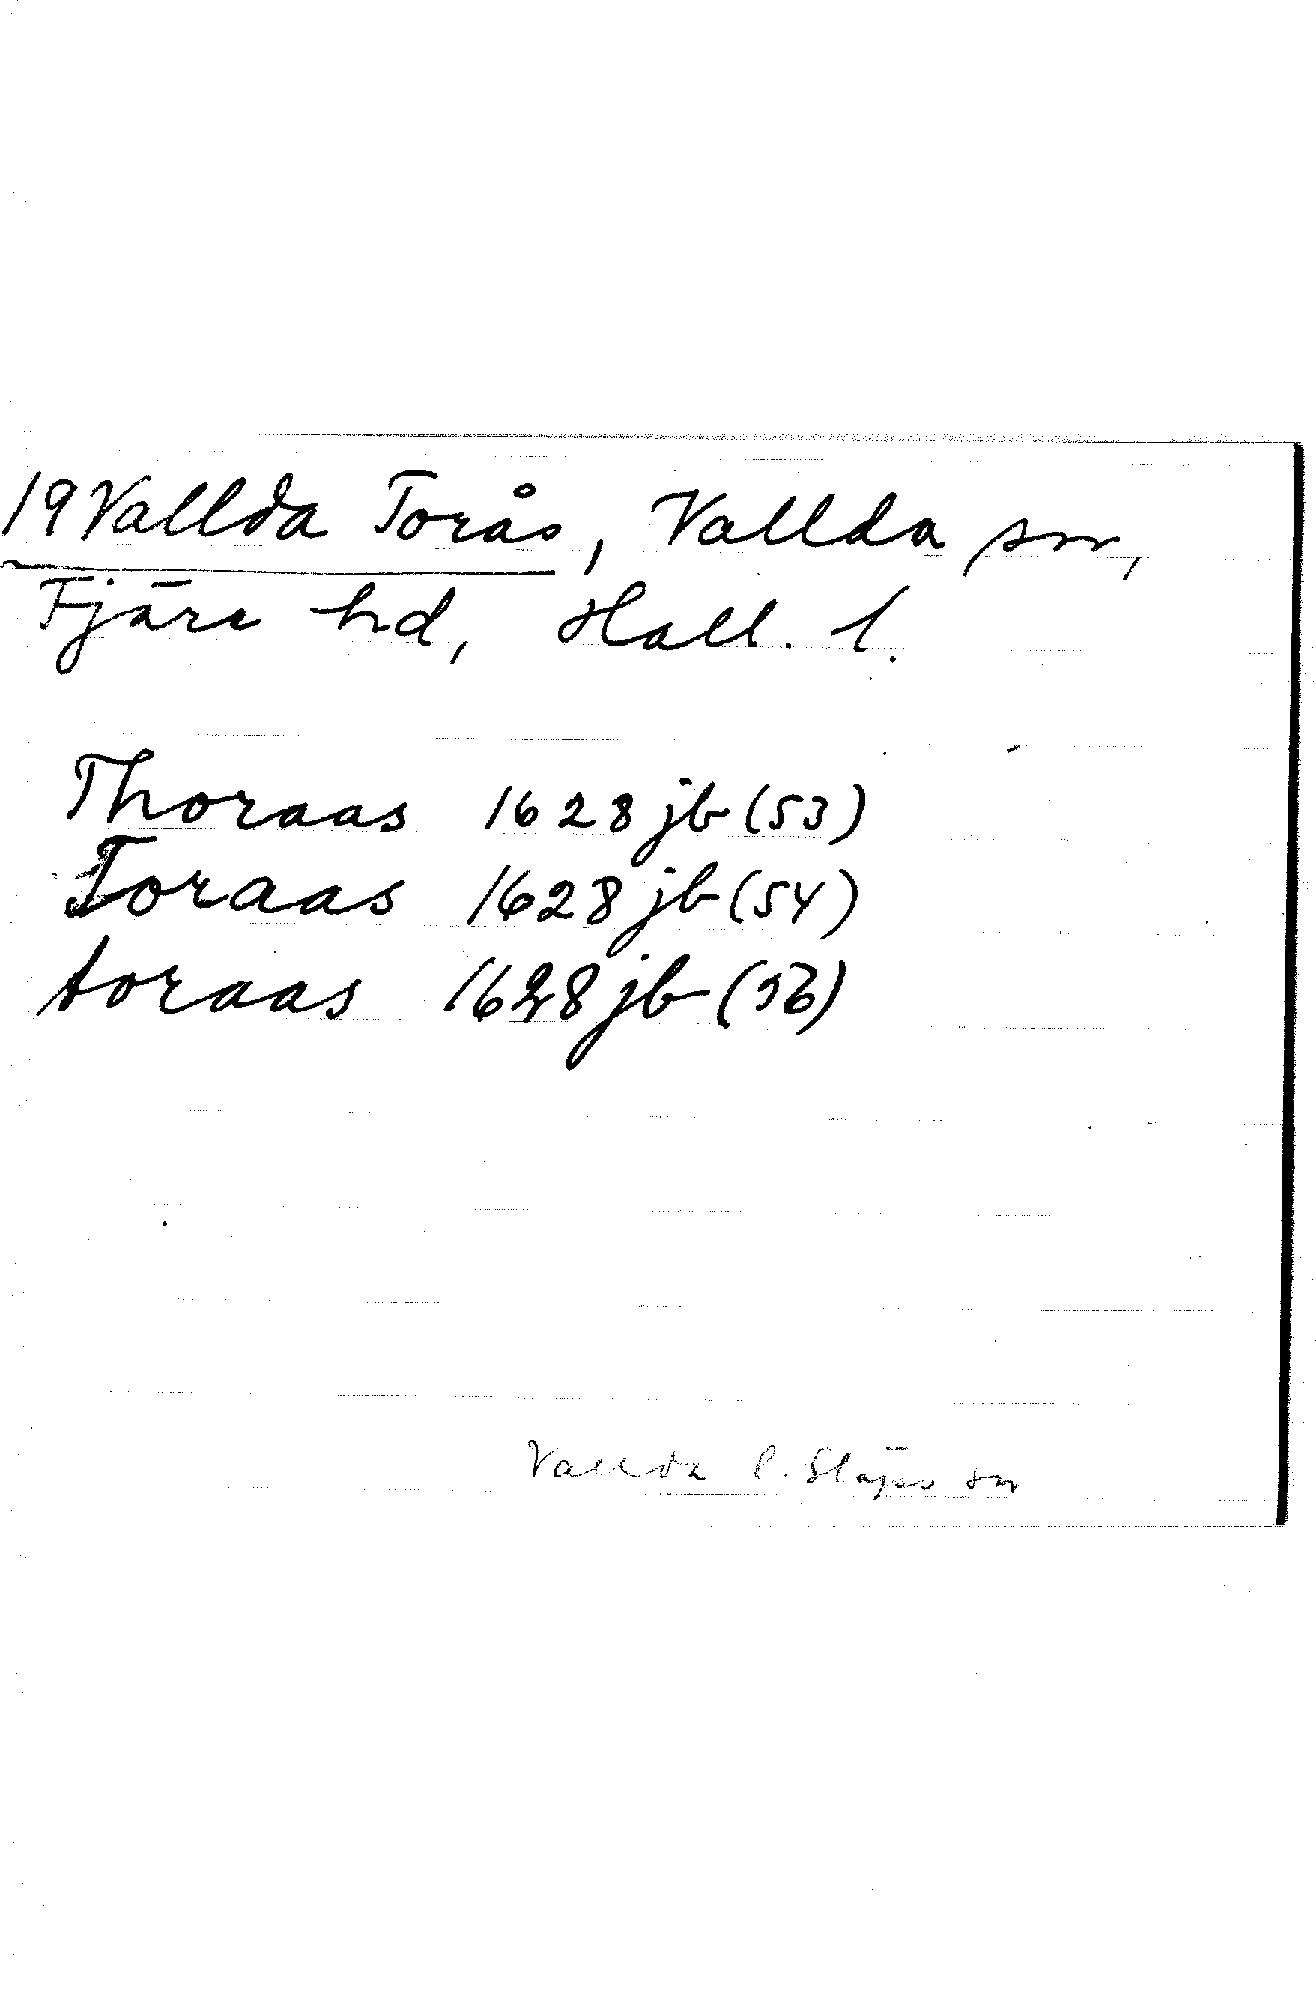 19 Vallda Torås, Vallda sn,
Fjäre hd, Hall. l.
Thoraas 1628 jb (53)
Toraas 1628 jb (54)
toraas 1628 jb (56)
Vallda o. Släps sn